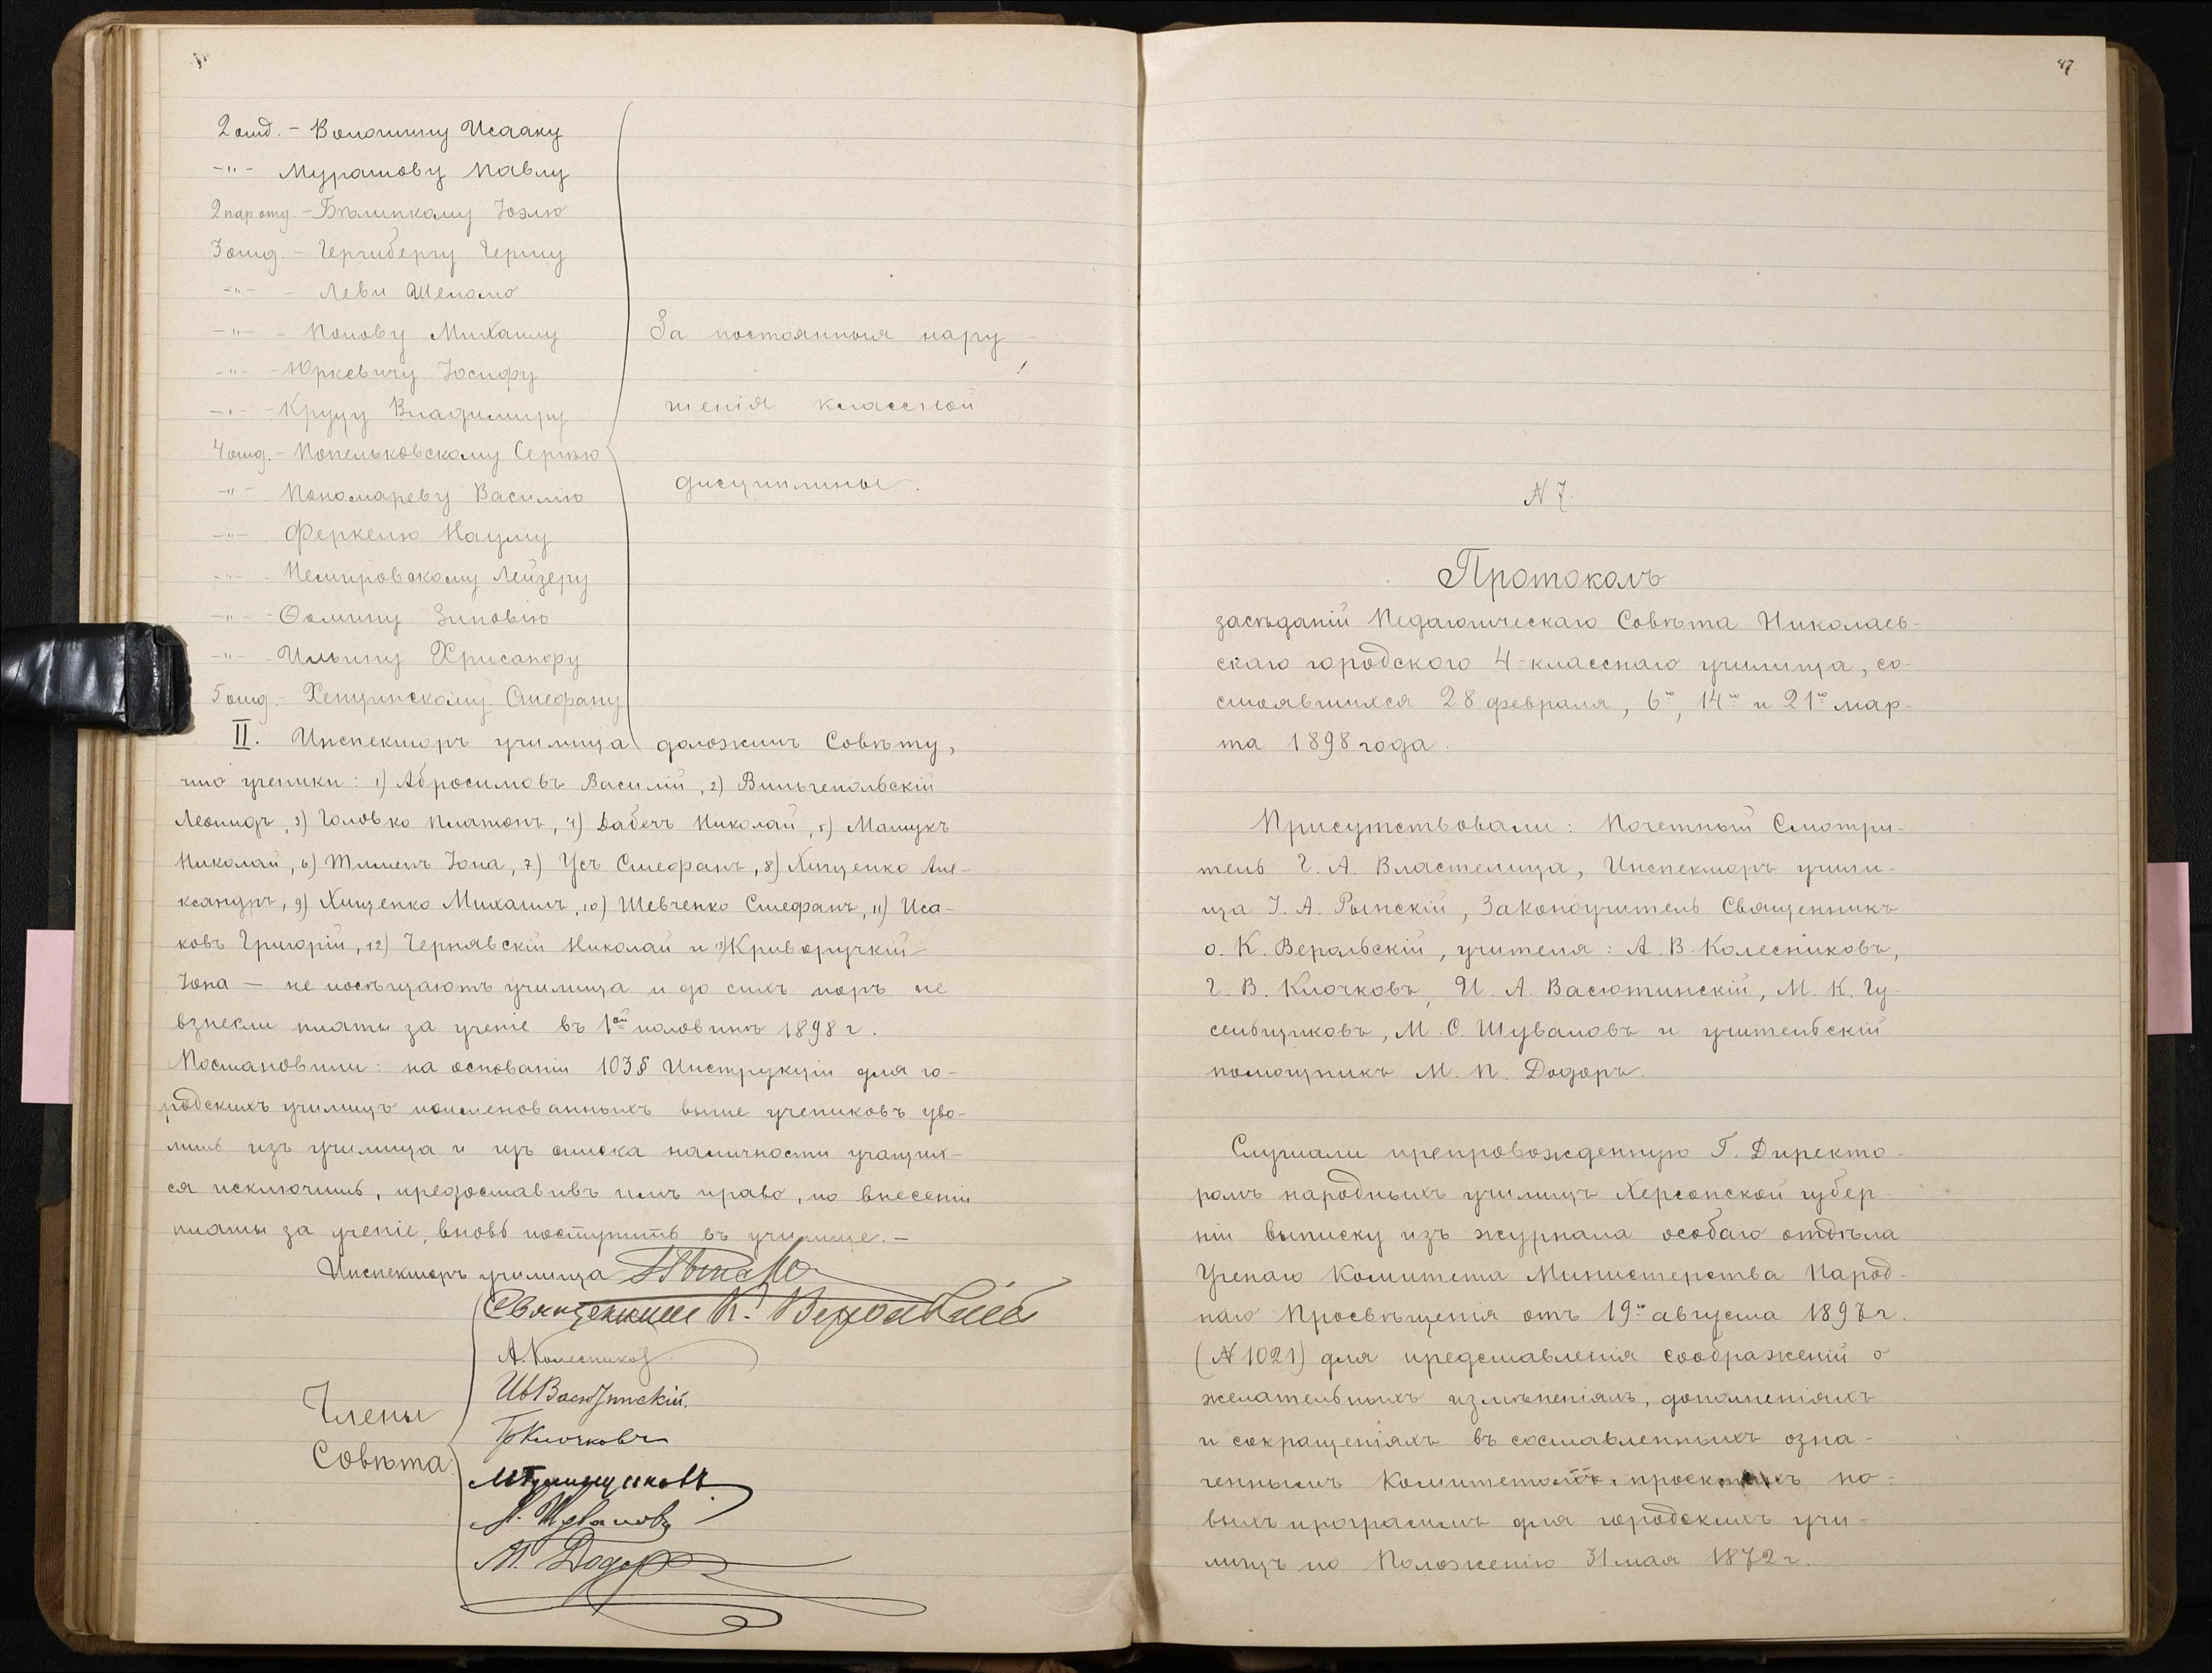 2 отд. - Волошину Исааку
-"- Мурашову Павлу
2 пар. отд. - Бѣлицкому Іоэлю
3 отд. - Гершбергу Гершу
-"- - Леви Шеломо
-"- - Попову Михаилу
-"- - Юркевичу Іосифу
-"- - Круцу Владимиру
4 отд. - Попельковскому Сергѣю
-"- Пономареву Василію
-"- Феркелю Науму
-"- Немировскому Лейзеру
-"- - Ѳомину Зиновію
-"- - Ильину Хрисанфу
5 отд. - Хенцинскому Стефану
За постоянныя нару-
шенія классной
дисциплины.
II. Инспекторъ училища доложилъ Совѣту,
что ученики: 1) Абросимовъ Василій, 2) Вильчепольскій
Леонидъ, 3) Головко Платонъ, 4) Дабечъ Николай, 5) Мащукъ
Николай, 6) Тлименъ Іона, 7) Усъ Стефанъ, 8) Хищенко Але-
ксандръ, 9) Хищенко Михаилъ, 10) Шевченко Стефанъ, 11) Иса-
ковъ Григорій, 12) Чернявскій Николай и 13) Криворучкій
Іона — не посѣщаютъ училища и до сихъ поръ не
взнесли платы за ученіе въ 1ой половинѣ 1898 г.
Постановили: на основаніи 103 § Инструкціи для го-
родскихъ училищъ поименованныхъ выше учениковъ уво-
лить изъ училища и изъ списка наличности учащих-
ся исключить, предоставивъ имъ право, по внесеніи
платы за ученіе, вновь поступить въ училище. -
Инспекторъ училища
Священникъ К. Верольскій
А. Колесниковъ
И Васютинскій.
Члены
Г Клочковъ
Совѣта
М Гусельщиковъ
М. Шуваловъ
М. Додоръ
47.
№ 7.
Протоколъ
засѣданій Педагогическаго Совѣта Николаев-
скаго городского 4-класснаго училища, со-
стоявшихся 28 февраля, 6го, 14го и 21го мар-
та 1898 года.
Присутствовали: Почетный Смотри-
тель Г. А. Властелица, Инспекторъ учили-
ща І. А. Рынскій, Законоучитель Священникъ
о. К. Верольскій, учителя: А. В. Колесниковъ,
Г. В. Клочковъ, И. А. Васютинскій, М. К. Гу-
сельщиковъ, М. С. Шуваловъ и учительскій
помощникъ М. П. Додоръ.
Слушали препровожденную Г. Директо-
ромъ народныхъ училищъ Херсонской губер-
ніи выписку изъ журнала особаго отдѣла
Ученаго Комитета Министерства Народ-
наго Просвѣщенія отъ 19го августа 1897 г.
(№ 1021) для представленія соображеній о
желательныхъ измѣненіяхъ, дополненіяхъ
и сокращеніяхъ въ составленныхъ озна-
ченнымъ Комитетомъ проектахъ но-
выхъ программъ для городскихъ учи-
лищъ по Положенію 31 мая 1872 г.